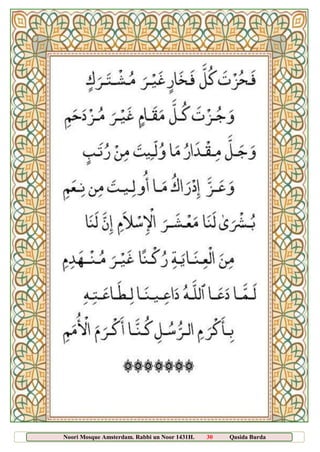 فَحُزْتَ كُلَّ فَخَارٍ غَيْرَ مُشْتَرَكٍ
وَجُزْتَ كُلَّ مَقَامٍ غَيْرَ مُزْدَحَمِ
وَجَلَّ مِقْدَارُ مَا وُلِّيتَ مِنْ رُتَبٍ
وَعَزَّ إِدْرَاكُ مَا أُولِيتَ مِنْ نِعَمِ
بُشْرَىٰ لَنَا مَعْشَرَ الْإِسْلَامِ إِنَّ لَنَا
مِنَ الْعِنَايَةِ رُكْنًا غَيْرَ مُنْهَدِمِ
لَمَّا دَعَا اللَّهُ دَاعِينَا لِطَاعَتِهِ
بِأَكْرَمِ الرُّسْلِ كُنَّا أَكْرَمَ الْأُمَمِ
Noori Mosque Amsterdam. Rabbi un Noor 1431H. 30 Qasida Burda